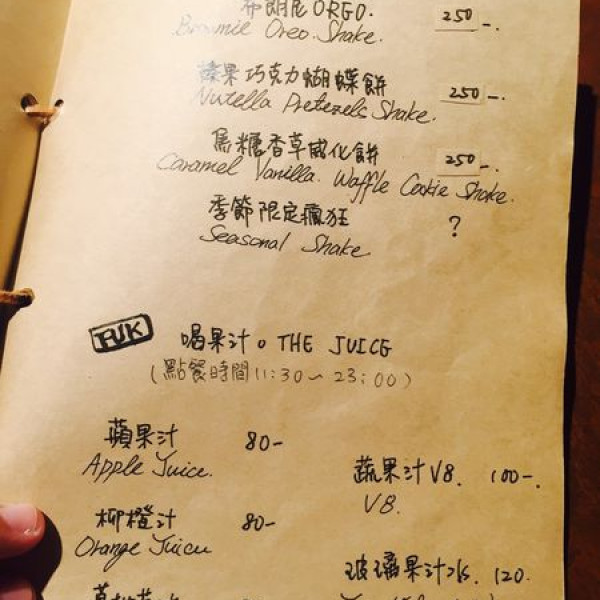 布朗尼 OREO. 250-.
Brownie Oreo Shake.
榛果巧克力蝴蝶餅 250-.
Nutella Pretezels Shake.
焦糖香草威化餅 250-.
Caramel Vanilla. Waffle Cookie Shake.
季節限定瘋狂 ?
Seasonal Shake
喝果汁。THE JUICE
(點餐時間 11:30~23:00)
蘋果汁 80-
Apple Juice.
柳橙汁 80-
Orange Juice
蔬果汁 V8. 100-.
V8.
玻璃果汁水. 120.